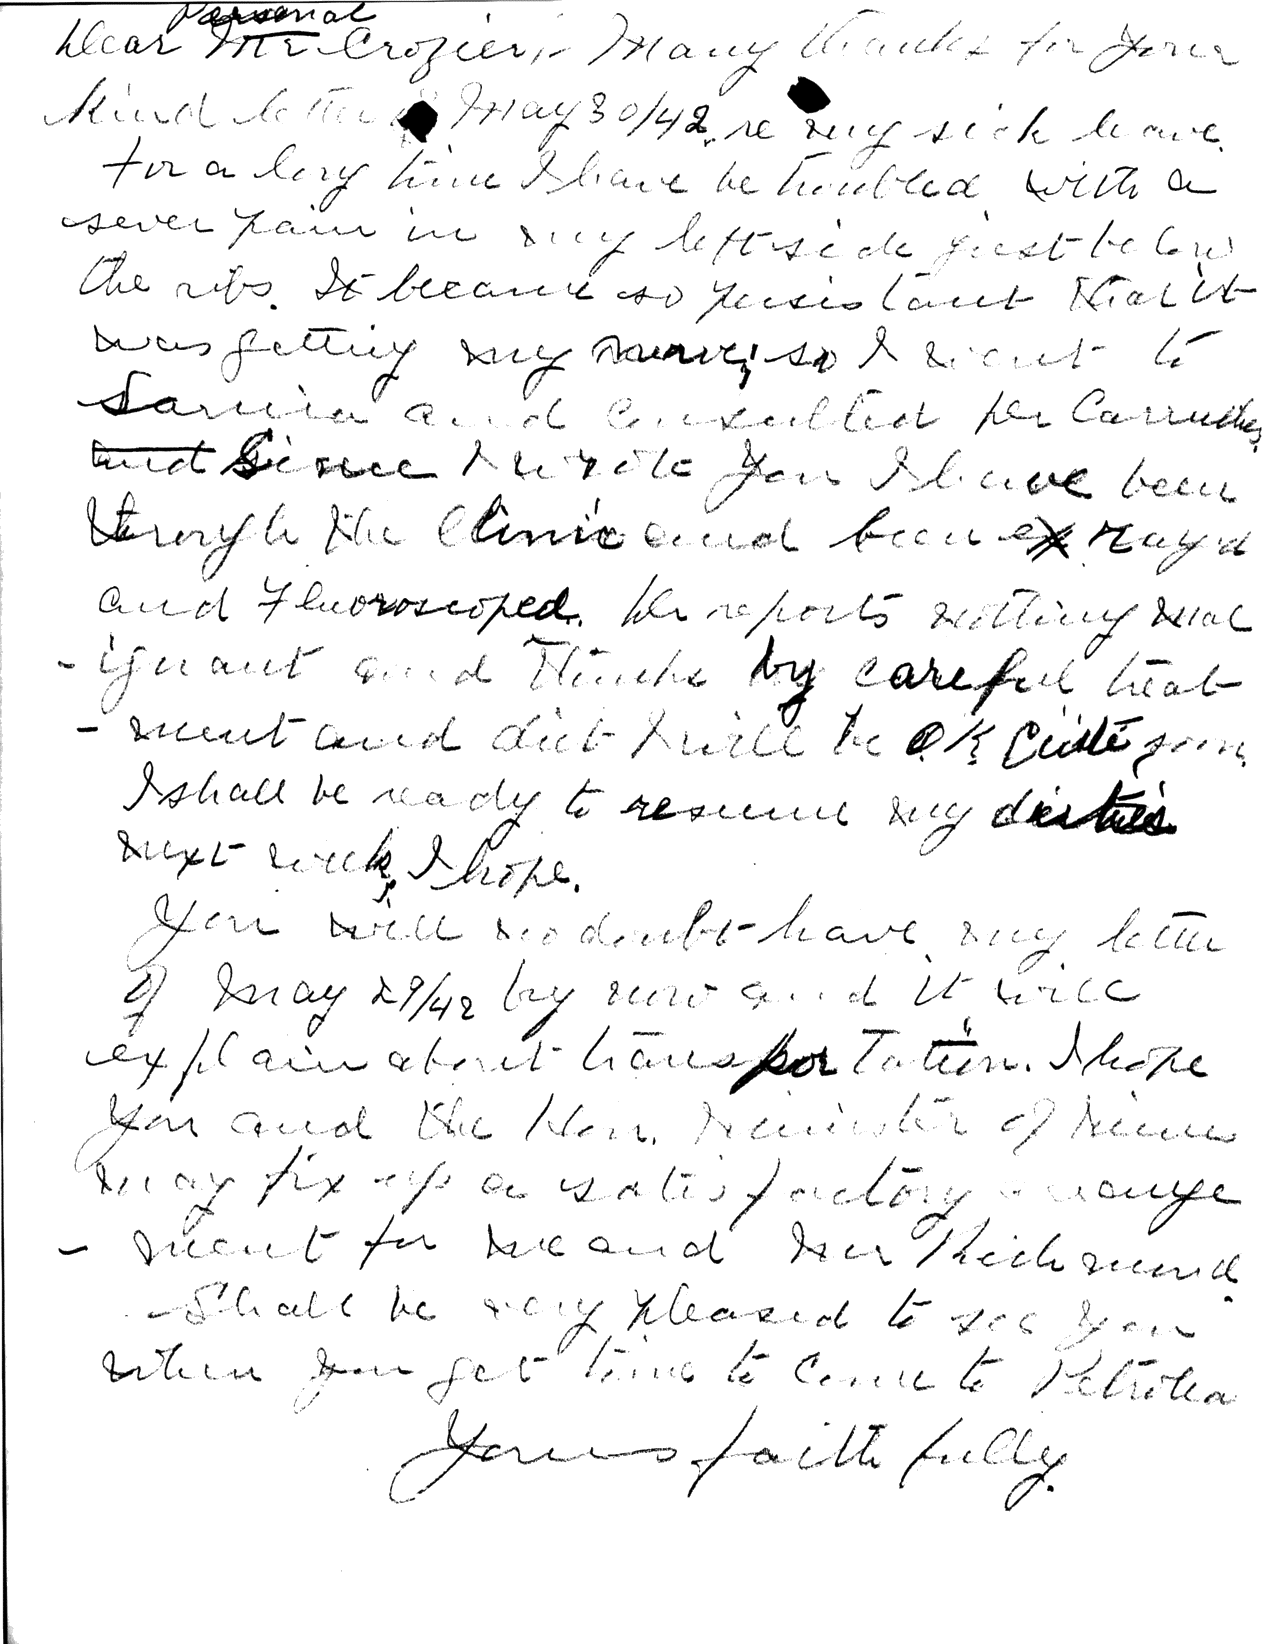 Personal
Dear Mr Crozier, - Many thanks for your
kind letter of May 30/42. re my sick leave.
For a long time I have be troubled with a
sever pain in my left side just below
the ribs. It became so persistant that it
was getting my nerve, so I went to
Sarnia and consulted Dr Carruthers.
and Since I wrote you I have been
through the Clinic and been ex ray'd
and Fluoroscoped. Dr reports nothing mal
- ignant and thinks by careful treat
- ment and diet I will be O.K. quite soon.
I shall be ready to resume my duties
next week, I hope.
You will no doubt have my letter
of May 29/42 by now and it will
explain about transportation. I hope
you and the Hon. Minister of Mines
may fix up a satisfactory arrange
- ment for me and Mr Richmond.
Shall be very pleased to see you
when you get time to come to Petrolea
Yours faithfully.